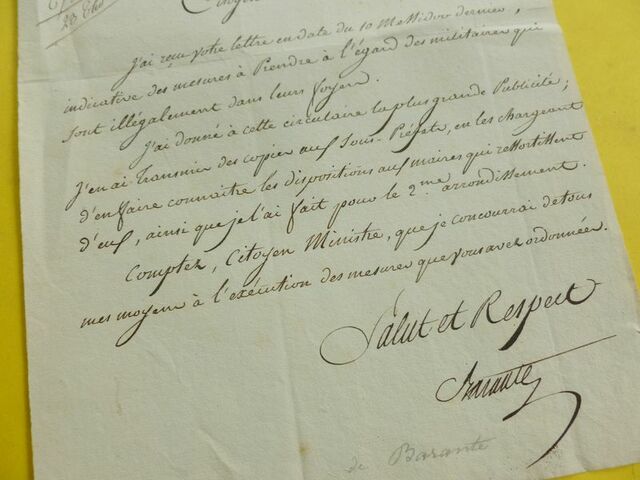 Citoyen
23 Thd
J'ai reçu votre lettre en date du 10 Messidor dernier,
indicative des mesures à Prendre à l'égard des militaires qui
sont illégalement dans leurs foyers.
J'ai donné à cette circulaire la plus grande Publicité;
J'en ai Transmis des copies aux Sous-Préfets, en les chargeant
d'en faire connaître les dispositions aux maires qui ressortissent
d'eux, ainsi que je l'ai fait pour le 2.me arrondissement.
Comptez, Citoyen Ministre, que je concourrai de tous
mes moyens à l'exécution des mesures que vous avez ordonnées.
Salut et Respect
Barante
de Barante